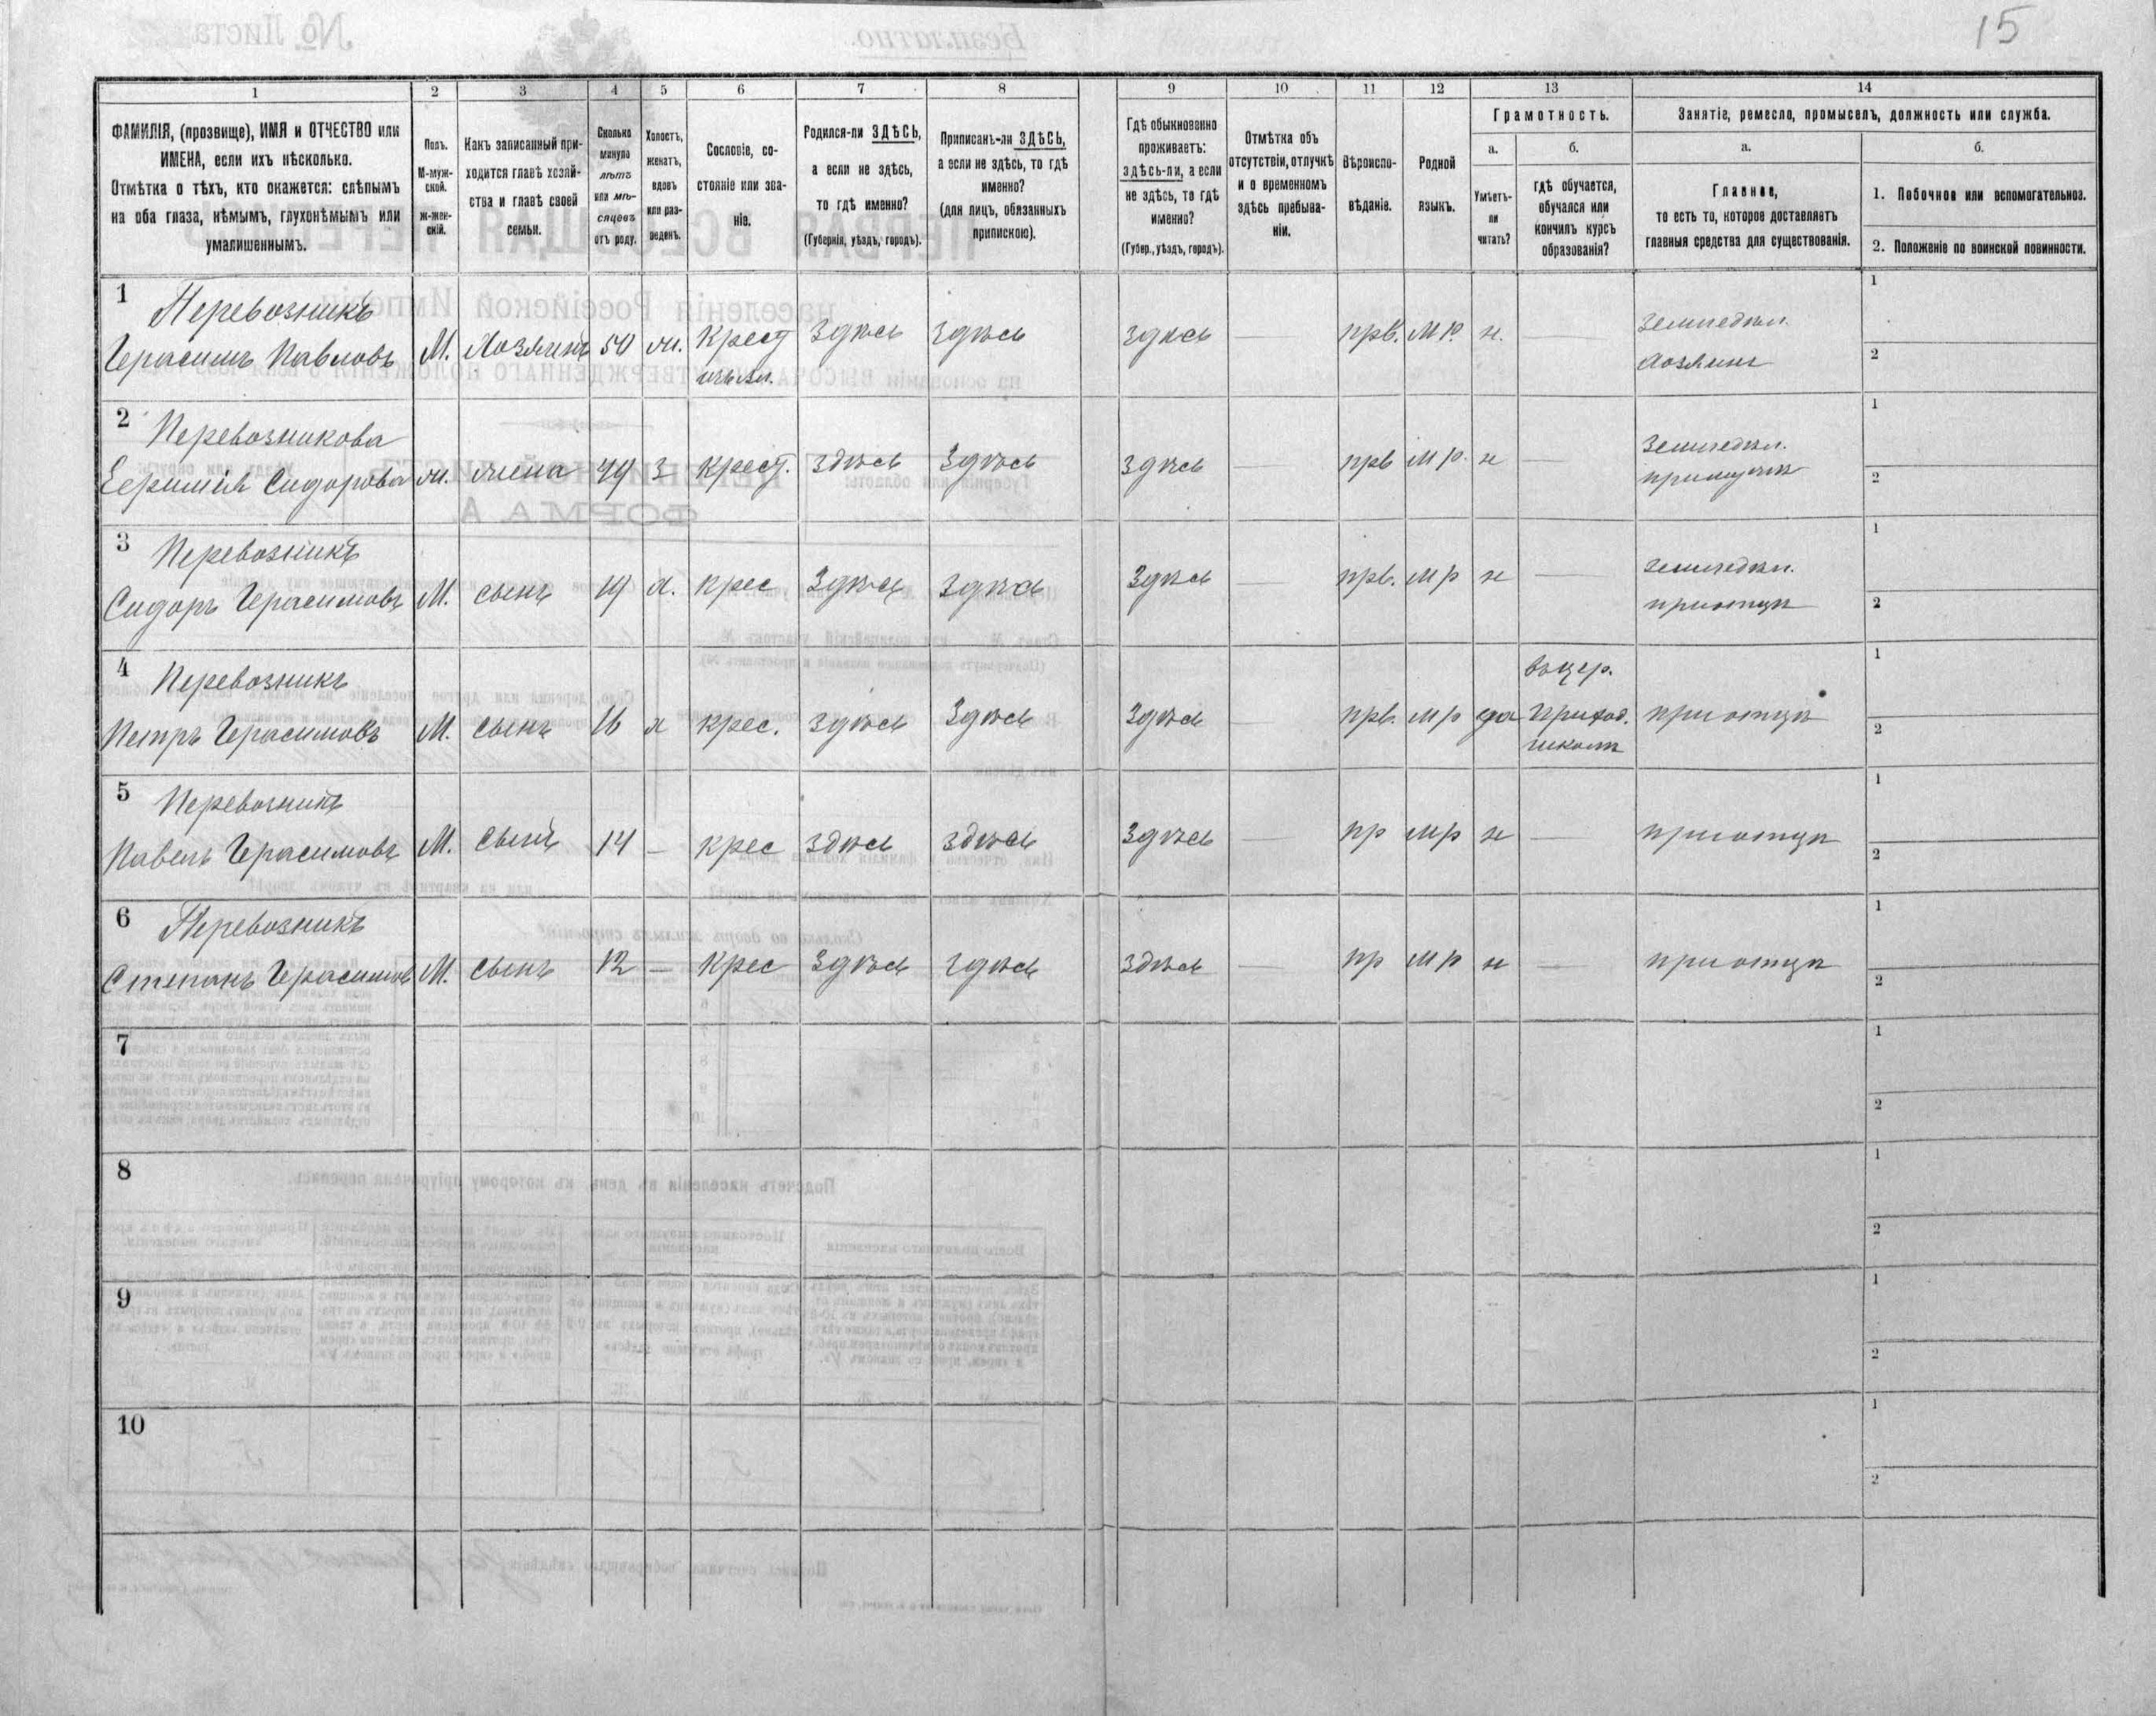 15
1 2 3 4 5 6 7 8 9 10 11 12 13 14
ФАМИЛІЯ, (прозвище), ИМЯ и ОТЧЕСТВО или
ИМЕНА, если ихъ нѣсколько.
Отмѣтка о тѣхъ, кто окажется: слѣпымъ
на оба глаза, нѣмымъ, глухонѣмымъ или
умалишеннымъ.
Полъ.
М-муж-
ской.
Ж-жен-
скій.
Какъ записанный при-
ходится главѣ хозяй-
ства и главѣ своей
семьи.
Сколько
минуло
лѣтъ
или мѣ-
сяцевъ
отъ роду.
Холостъ,
женатъ,
вдовъ
или раз-
веденъ.
Сословіе, со-
стояніе или зва-
ніе.
Родился-ли ЗДѢСЬ,
а если не здѣсь,
то гдѣ именно?
(Губернія, уѣздъ, городъ).
Приписанъ-ли ЗДѢСЬ,
а если не здѣсь, то гдѣ
именно?
(для лицъ, обязанныхъ
припискою).
Гдѣ обыкновенно
проживаетъ:
здѣсь-ли, а если
не здѣсь, то гдѣ
именно?
(Губер., уѣздъ, городъ).
Отмѣтка объ
отсутствіи, отлучкѣ
и о временномъ
здѣсь пребыва-
ніи.
Вѣроиспо-
вѣданіе.
Родной
языкъ.
Грамотность.
а.
Умѣетъ-
ли
читать?
б.
гдѣ обучается,
обучался или
кончилъ курсъ
образованія?
Занятіе, ремесло, промыселъ, должность или служба.
а.
Главное,
то есть то, которое доставляетъ
главныя средства для существованія.
б.
1. Побочное или вспомогательное.
2. Положеніе по воинской повинности.
1 Перевозникъ
Герасимъ Павловъ М. Хозяинъ 50 ж. Крест здѣсь здѣсь здѣсь — прв. мр. н. — земледѣл.
хозяинъ
1
2
2 Перевозникова
Сидорова ж. жена 49 з крест. здѣсь здѣсь здѣсь — прв мр. н — земледѣл.
1
2
3 Перевозникъ
Сидоръ Герасимовъ М. сынъ 19 х. крес здѣсь здѣсь здѣсь — прв. мр н — земледѣл.
при отцѣ
1
2
4 Перевозникъ
Петръ Герасимовъ М. сынъ 16 х крес. здѣсь здѣсь здѣсь — прв. мр да въ цер.
приход.
школѣ
при отцѣ
1
2
5 Перевозникъ
Павелъ Герасимовъ М. сынъ 14 — крес здѣсь здѣсь здѣсь — пр мр н — при отцѣ
1
2
6 Перевозникъ
Степанъ Герасимов М. сынъ 12 — крес здѣсь здѣсь здѣсь — пр мр н — при отцѣ
1
2
7
1
2
8
1
2
9
1
2
10
1
2